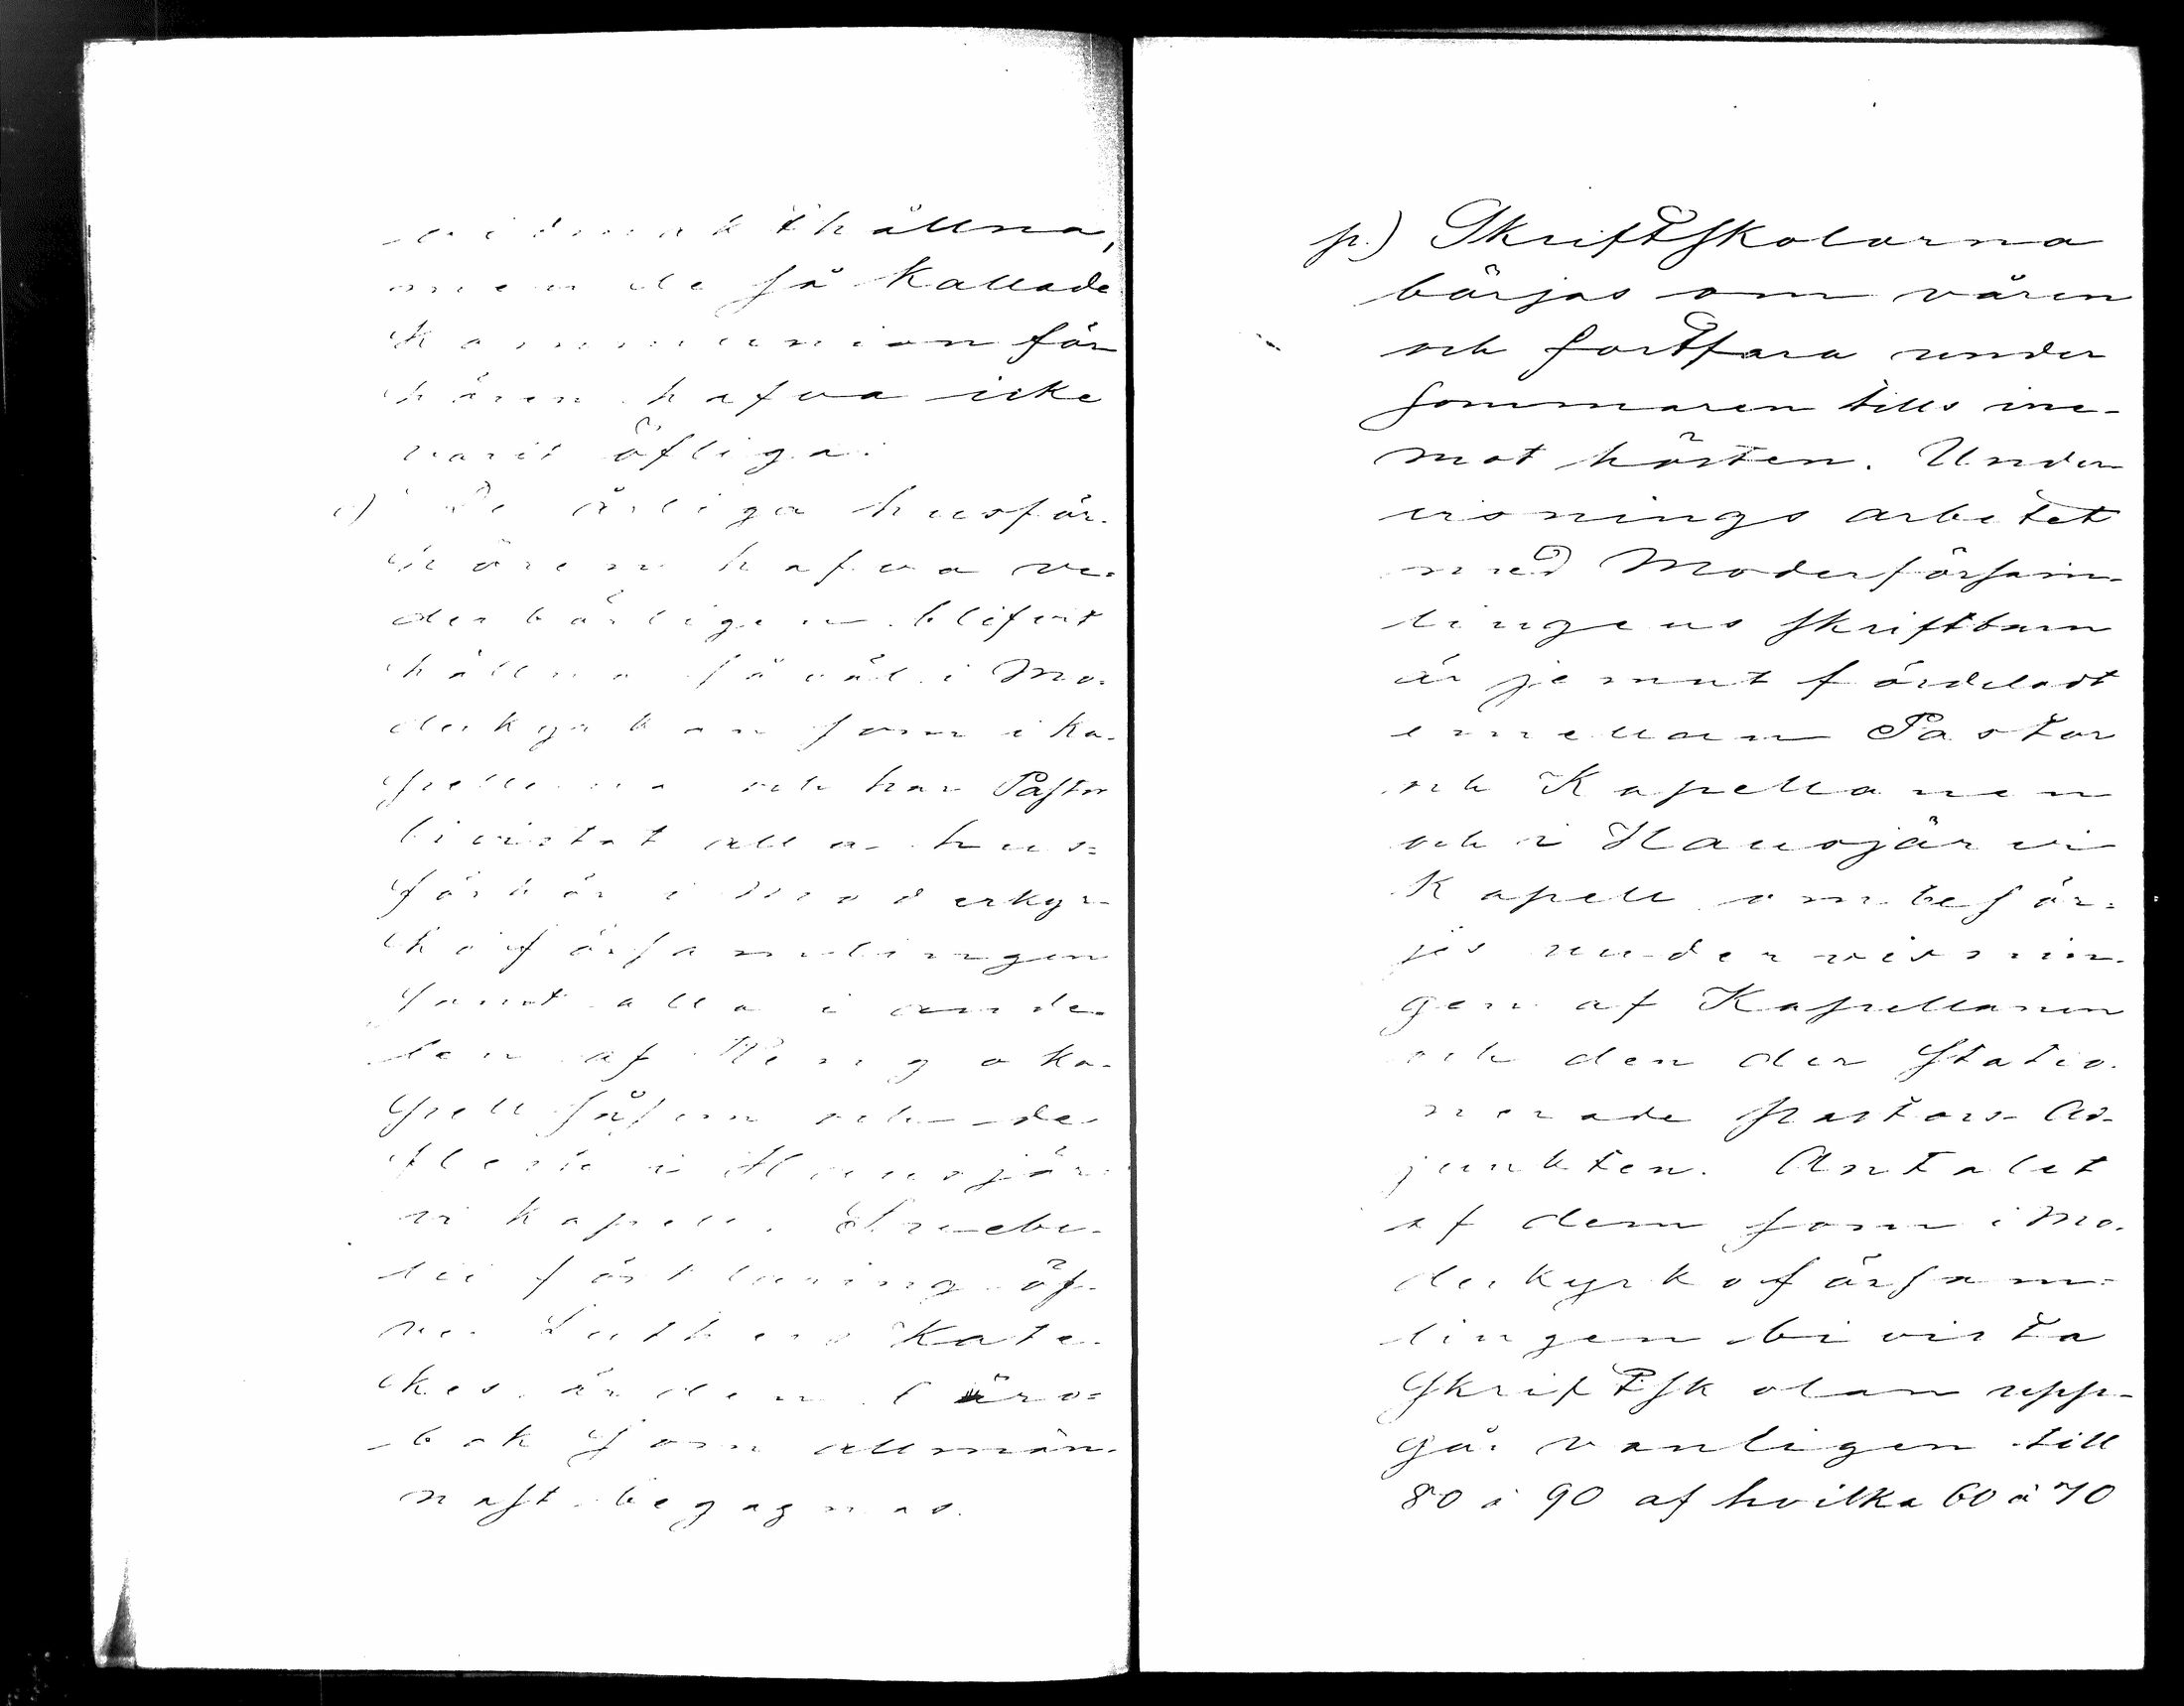 vidmakthållna,
men de så kallade
Kommunion för
hören hafva icke
varit öfliga.
o) De årliga husför-
hören hafva ve-
derbörligen blifvit
hållna såväl i Mo-
derkyrkan som i Ka-
pellerna och har Pastor
bivistat alla hus=
förhör i Moderkyr-
koförsamlingen
samt alla i ande-
len af Kapell
såsom och de
fleste i Hausjär-
vi kapell. Svebi-
lii förklaring öf-
ver Luthers Kate-
kes är den läro=
bok som allmän-
nast begagnas.
p.) Skriftskolorna
börjas om våren
och fortfara under
sommaren tills ine-
mot hösten. Under-
visnings arbetet
med Moderförsam-
lingens skriftbarn
är jemnt fördeladt
emellan Pastor
och Kapellanen
och i Hausjärvi
Kapell ombesör=
jes undervisnin-
gen af Kapellanen
och den der statio-
nerade pastors-Ad-
junkten. Antalet
af dem som i Mo-
derkyrkoförsam-
lingen bivista
Skriftskolan upp-
går vanligen till
80 à 90 af hvilka 60 à 70